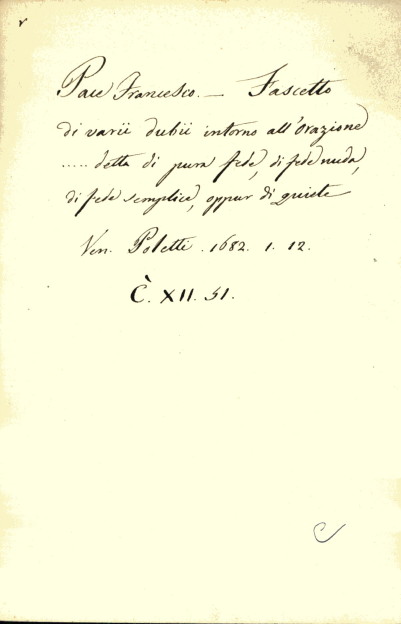 Pace Francesco. — Fascetto
di varii dubii intorno all'Orazione
..... detta di pura fede, di fede nuda,
di fede semplice, oppur di quiete
Ven. Poletti. 1682. 1. 12.
C̀. XII. 51.